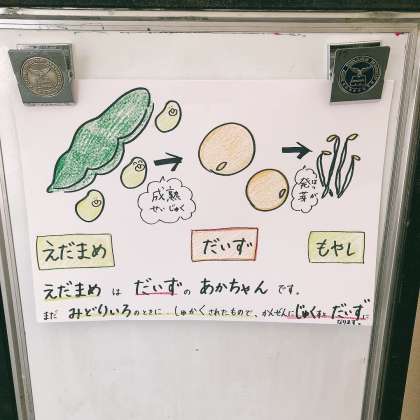 成熟
せいじゅく
はつが
発芽
えだまめ
だいず
もやし
えだまめ は だいず の あかちゃん です。
まだ みどりいろ のときに しゅかく されたもので、かんぜんに じゅくすと だいず に
なります。